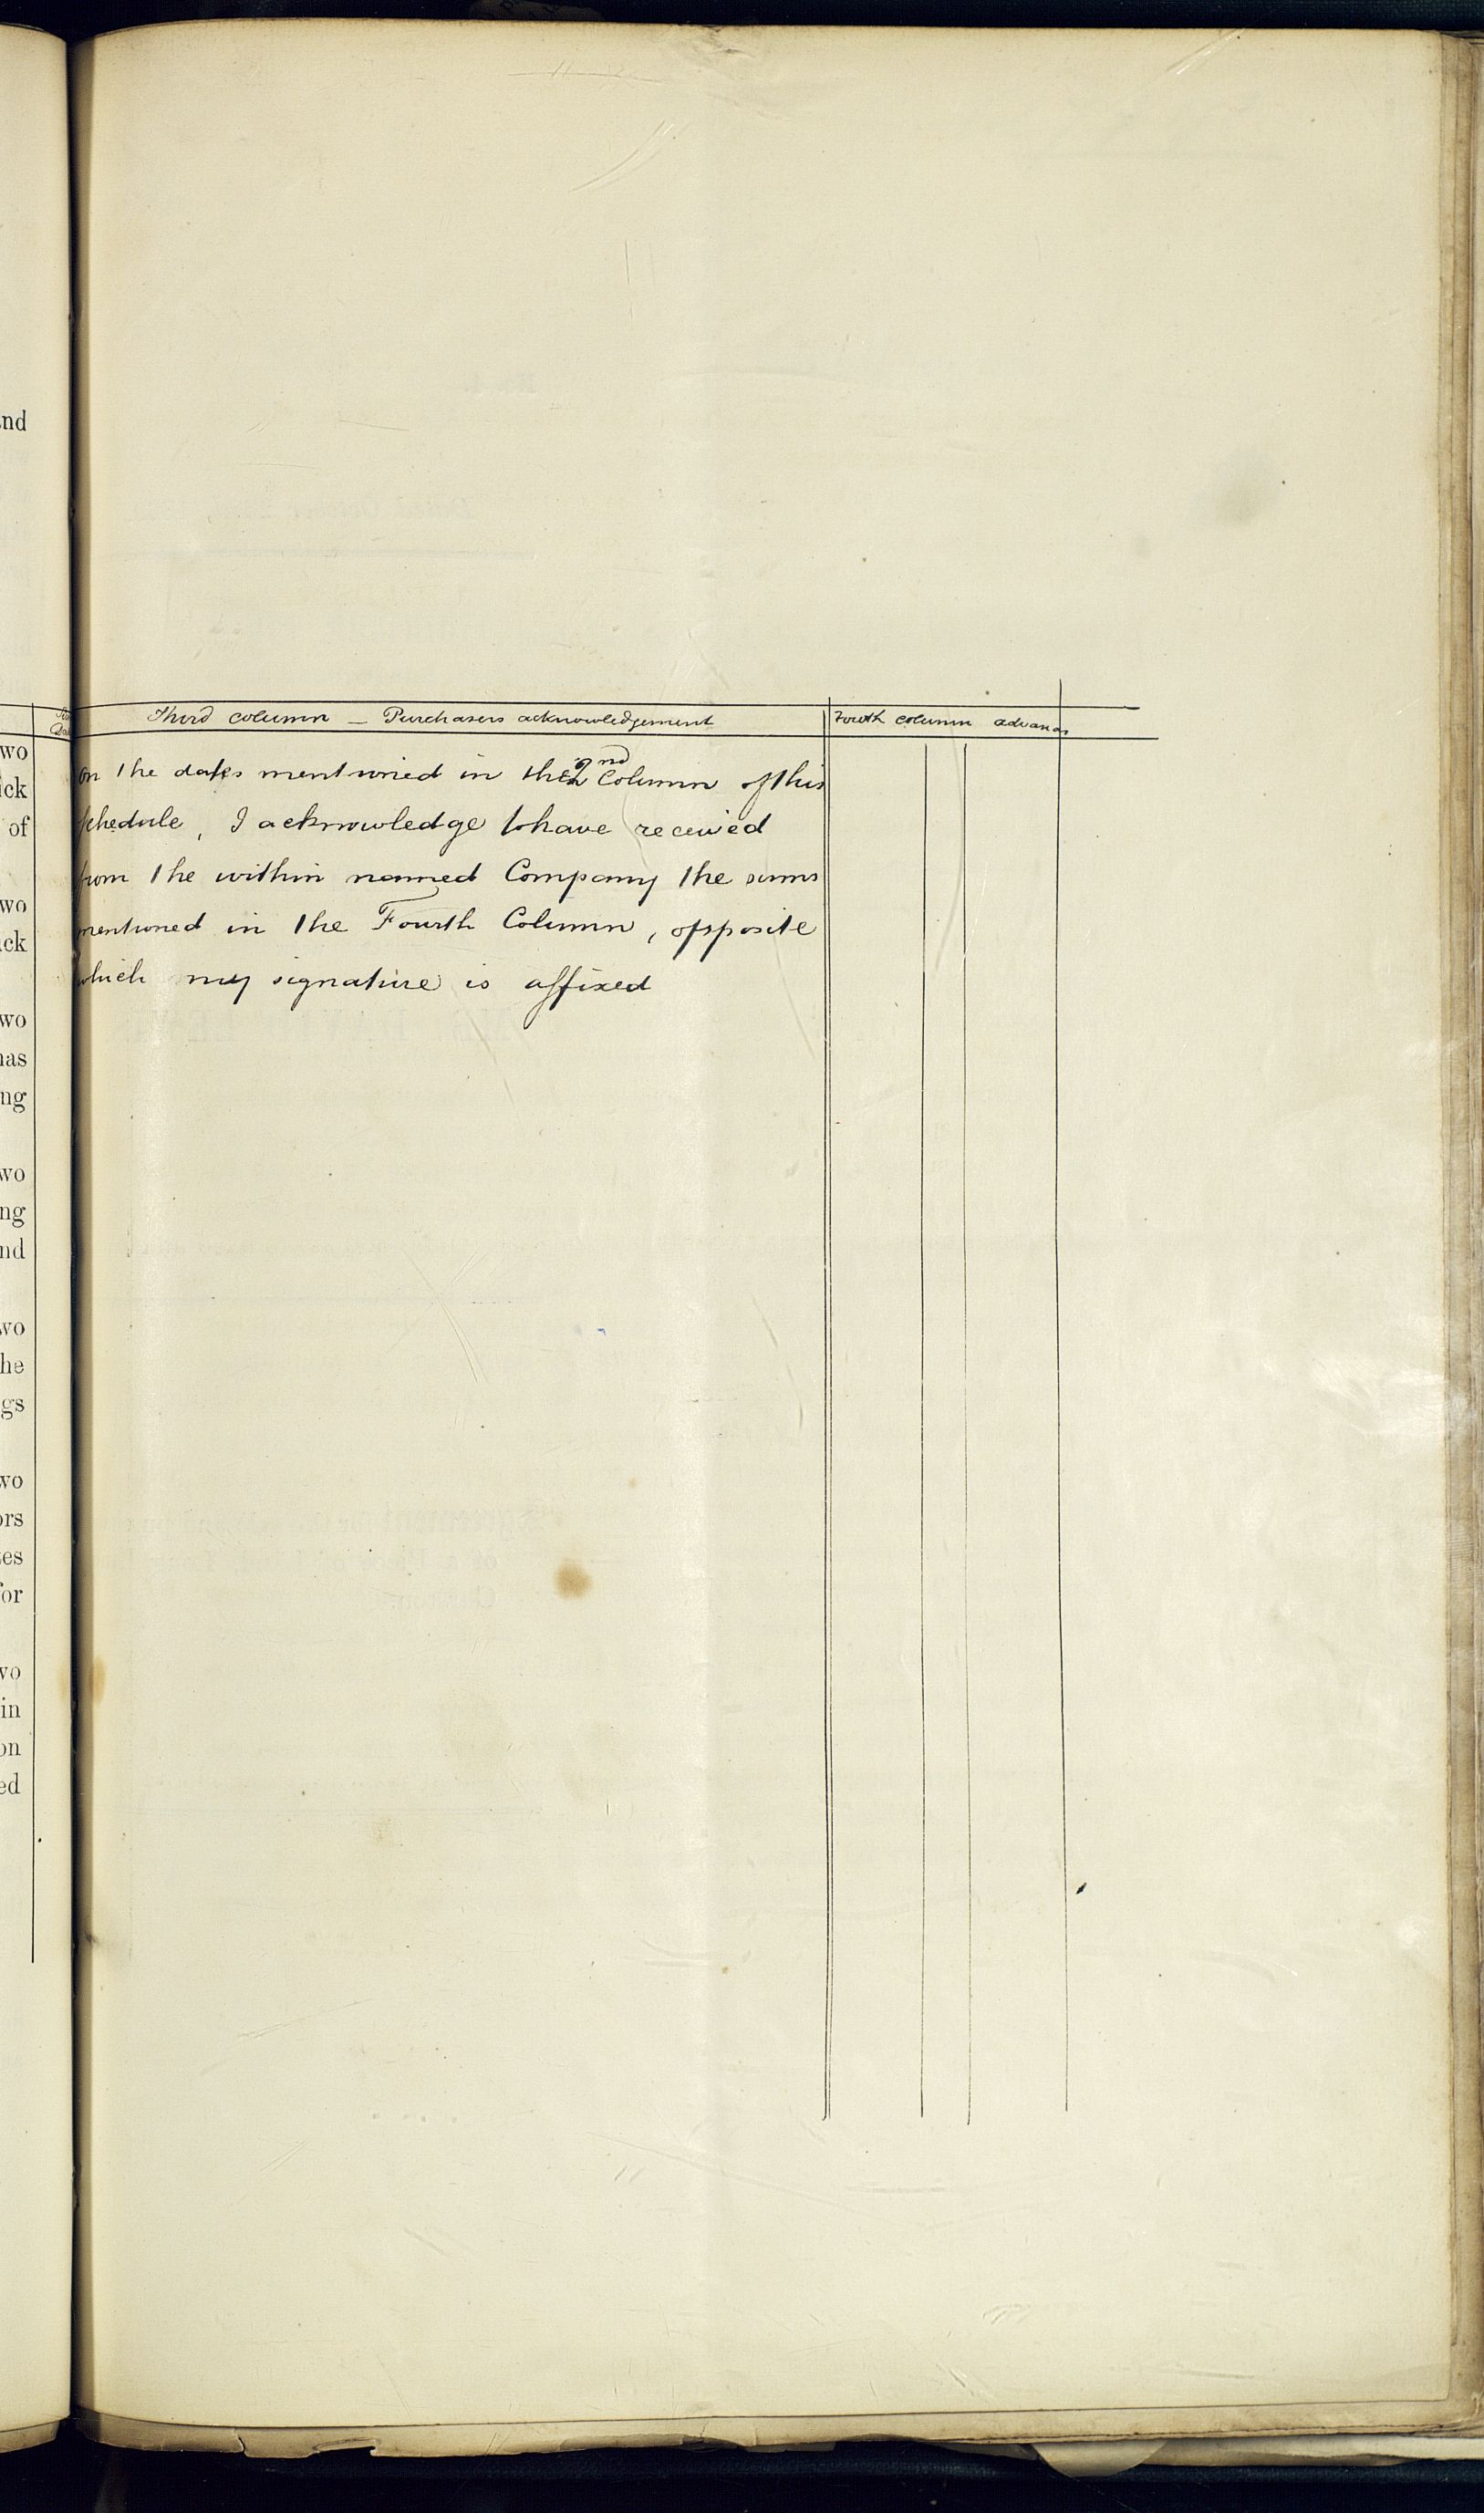 nd
wo
ck
of
wo
ck
wo
has
ng
wo
ng
nd
wo
he
gs
wo
ors
tes
for
wo
in
on
ed
Third column — Purchasers acknowledgement
Fourth column advances
On the dates mentioned in the 2nd Column of this
schedule, I acknowledge to have received
from the within named Company the sums
mentioned in the Fourth Column, opposite
which my signature is affixed